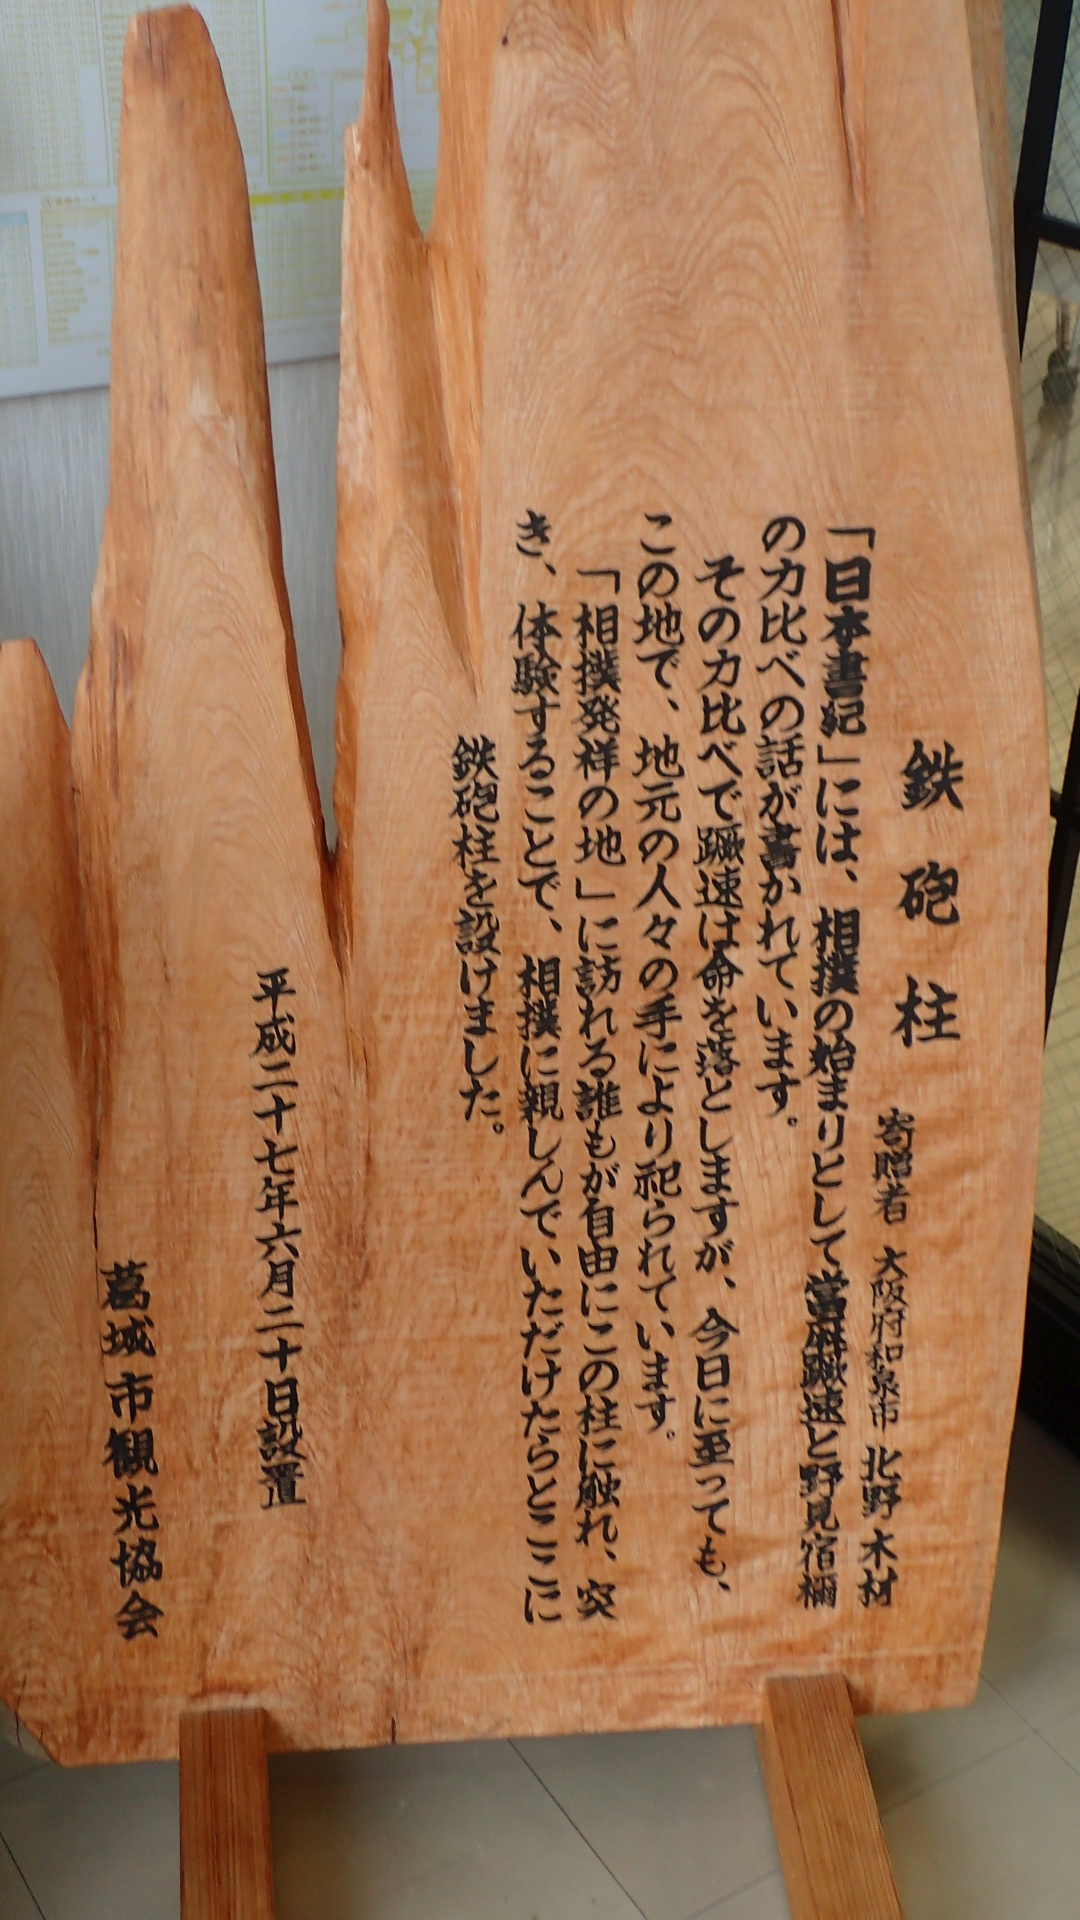 鉄砲柱
寄贈者 大阪府和泉市 北野木材
「日本書紀」には、相撲の始まりとして當麻蹶速と野見宿禰
の力比べの話が書かれています。
その力比べで蹶速は命を落としますが、今日に至っても、
この地で、地元の人々の手により祀られています。
「相撲発祥の地」に訪れる誰もが自由にこの柱に触れ、突
き、体験することで、相撲に親しんでいただけたらとここに
鉄砲柱を設けました。
平成二十七年六月二十日設置
葛城市観光協会